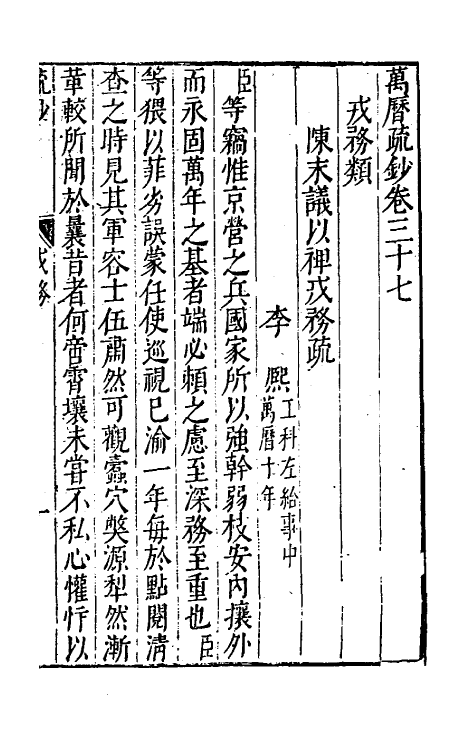 萬曆疏鈔卷三十七
戎務類
陳末議以裨戎務疏
李熈工科左給事中
萬曆十年
臣等竊惟京營之兵國家所以強幹弱枝安內攘外
而永固萬年之基者端必頼之慮至深務至重也臣
等猥以菲劣誤蒙任使巡視已渝一年每於點閱清
查之時見其軍容士伍肅然可觀蠹穴獘源犁然漸
革較所聞於曩昔者何啻霄壤未嘗不私心懽忻以
疏鈔
戎務
一